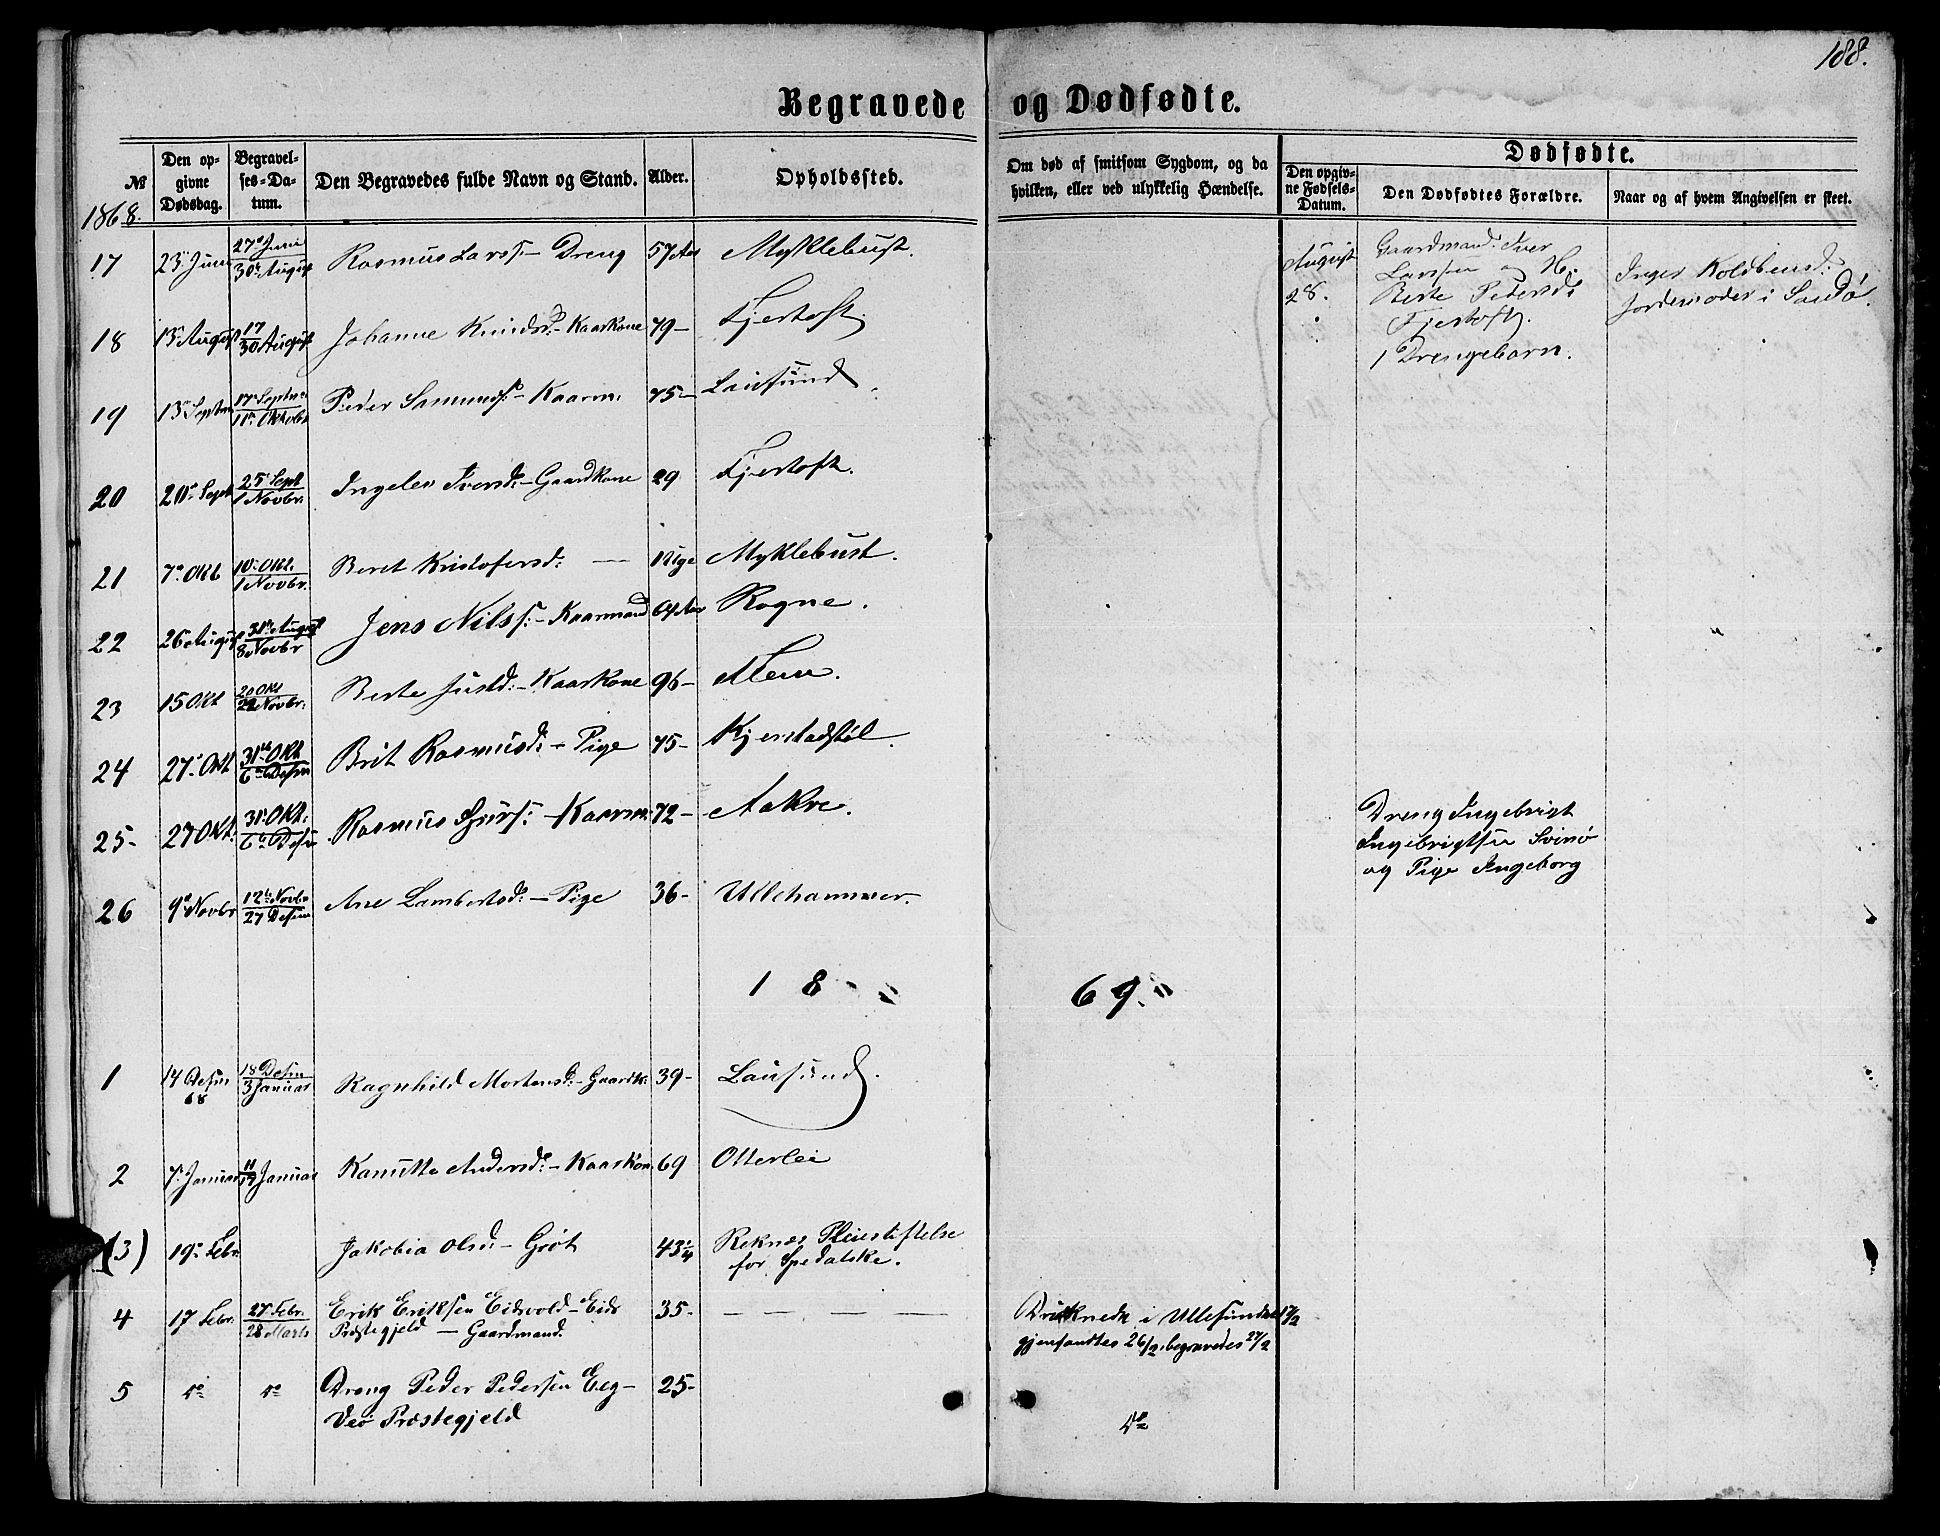 188.
Begravede og Dødfødte.
№
Den op-
givne
Dødsdag.
Begravel-
ses-Da-
tum.
Den Begravedes fulde Navn og Stand.
Alder.
Opholdssted.
Om død af smitsom Sygdom, og da
hvilken, eller ved ulykkelig Hændelse.
Dødfødte.
Den opgiv-
ne Fødsels-
Datum.
Den Dødfødtes Forældre.
Naar og af hvem Angivelsen er skeet.
1868.
17 23 Juni 27 Juni / 30 August Rasmus Larss: - Dreng 57 Aar Myklebust.
August 28. Gaardmand Iver
Larssen og H:
Berte Pedersd:
Fjertoft.
1 Drengebarn.
Inger Koldbensd:
Jordemoder i Sandø.
18 13 August 17 / 30 August Johanne Knudsd: - Kaarkone 79 - Fjertoft.
19 13 Septm 17 Septm / 11 Oktobr Peder Samunds: - Kaarm. 75 - Lausund.
20 20 Sept 25 Sept / 1 Novbr. Ingelev Iversd: - Gaardkone 29 Fjertoft.
21 7 Okt 10 Okt. / 1 Novbr. Beret Kristofersd: — 1 Uge Myklebust.
22 26 August 31 August / 8 Novbr Jens Nilss: - Kaarmand 64 Aar Rogne.
23 15 Okt 20 Okt / 22 Novbr. Berte Justd: - Kaarkone 96 - Alem.
24 27 Okt 31 Okt / 6 Desm Brit Rasmusd: - Pige 75 - Kjerstadstøl.
25 - 27 Okt. 31 Okt. / 6 Desm Rasmus Sjurs: - Kaarm. 72 - Aakre.
Dreng Ingebrigt
Ingebrigtsen Svinø
og Pige Ingeborg
26 9 Novbr 12 Novbr / 27 Desm Ane Lambertsd: - Pige 36 - Ullehammer.
18 69.
1 14 Desm 68 18 Desm / 3 Januar Ragnhild Mortensd: - Gaardk: 39 - Lausund.
2 7 Januar 11 / 17 Januar Kanutte Andersd: - Kaarkon. 69 Otterlei
(3) 19 Febr. Jakobia Olsd: - Grøt 43 1/4 Reknæs Pleiestiftelse
for Spedalske.
4 17 Febr. 27 Febr. / 28 Marts Erik Eriksen Eidsvold - Eids
Præstegjeld — Gaardmand. 35 - — — — —
Druknede i Ullesundet 17/2
gjenfandtes 26/2 begravedes 27/2
5 do do Dreng Peder Pedersen Eeg -
Veø Præstegjeld 25 -
do